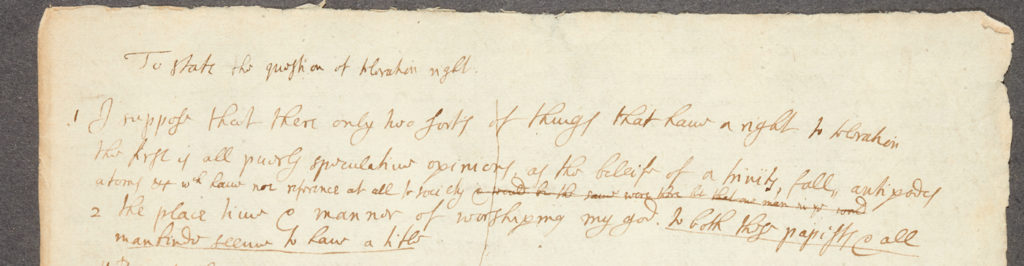 To state the question of toleration right.
.1 I suppose that there only two sorts of things that have a right to toleration
the first is all purely speculative opinions, as the beleife of a trinity, fall, antipodes
atoms &c wch have noe reference at all to society & would be the same were there but one man in ye world
2 the place time & manner of worshiping my god. to both these papists & all
mankinde seeme to have a title